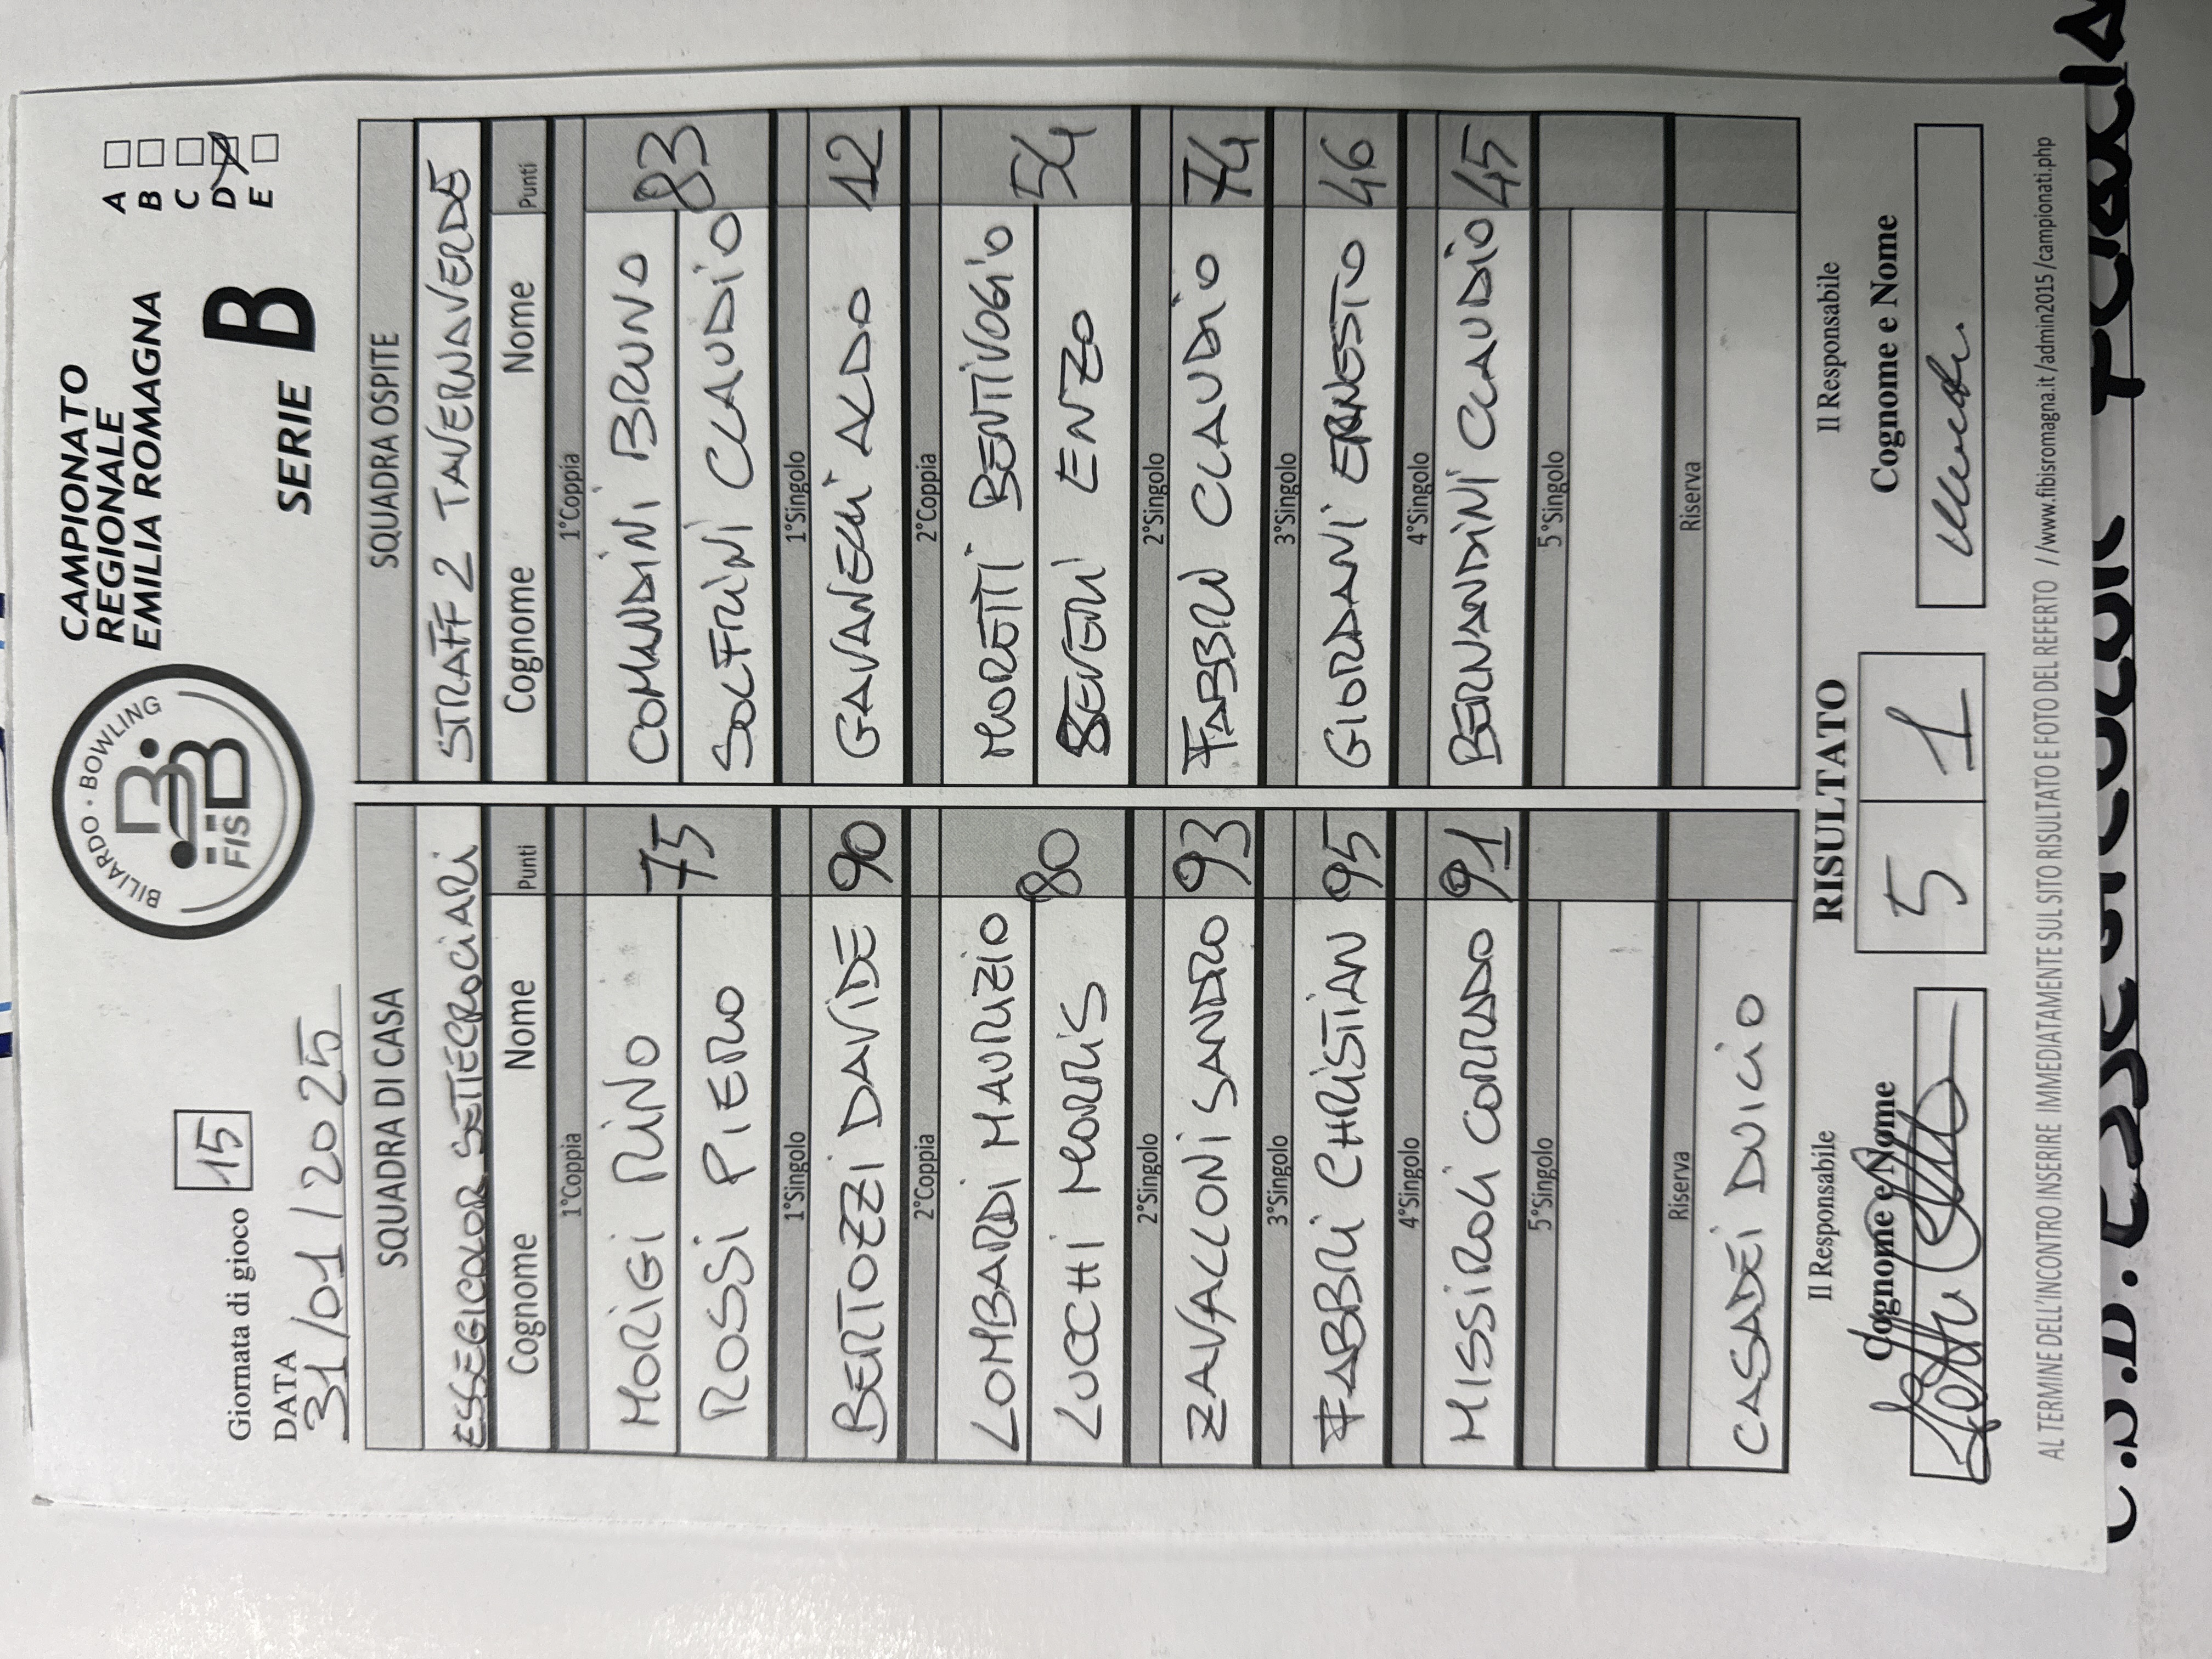 Giornata di gioco 15
DATA
31/01/2025
BILIARDO · BOWLING
FISBB
CAMPIONATO
REGIONALE
EMILIA ROMAGNA
SERIE B
A
B
C
D
E
SQUADRA DI CASA
ESSEGICOLOR SETTECROCIARI
Cognome Nome Punti
1°Coppia
MORIGI RINO
75
ROSSI PIERO
1°Singolo
BERTOZZI DAVIDE 90
2°Coppia
LOMBARDI MAURIZIO
80
LUCCHI MORRIS
2°Singolo
ZAVALLONI SANDRO 93
3°Singolo
FABBRI CHRISTIAN 95
4°Singolo
MISSIROLI CORRADO 91
5°Singolo
Riserva
CASADEI DUICIO
SQUADRA OSPITE
STRAFF 2 TAVERNAVERDE
Cognome Nome Punti
1°Coppia
COMANDINI BRUNO
83
SOLFRINI CLAUDIO
1°Singolo
GAVANELLI ALDO 12
2°Coppia
MORETTI BENTIVOGIO
54
SEVERI ENZO
2°Singolo
FABBRI CLAUDIO 74
3°Singolo
GIORDANI ERNESTO 46
4°Singolo
BERNARDINI CLAUDIO 45
5°Singolo
Riserva
Il Responsabile
Cognome e Nome
RISULTATO
5 1
Il Responsabile
Cognome e None
AL TERMINE DELL'INCONTRO INSERIRE IMMEDIATAMENTE SUL SITO RISULTATO E FOTO DEL REFERTO //www.fibisromagna.it/admin2015/campionati.php